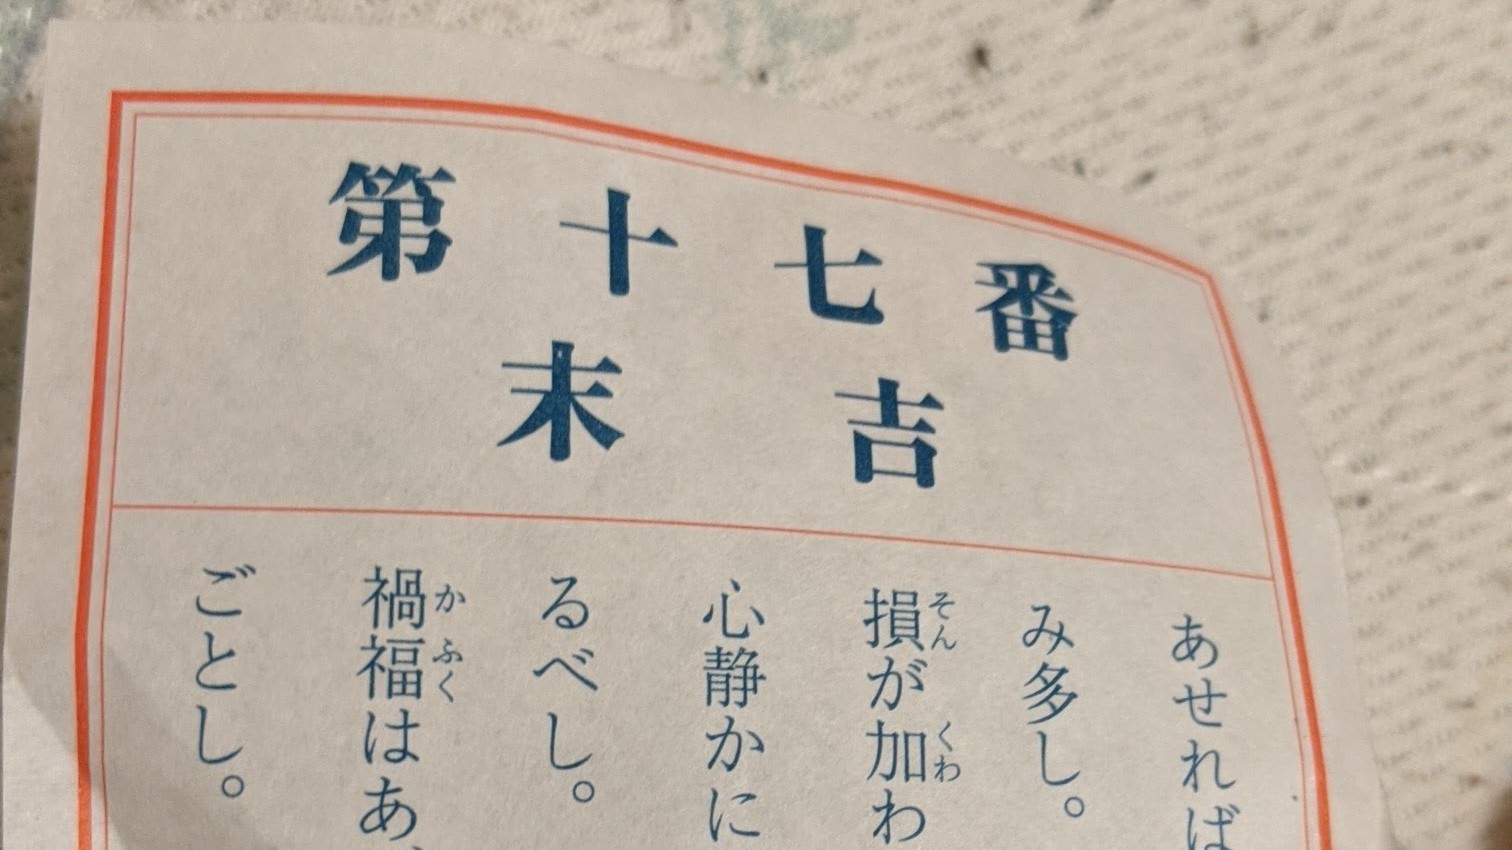 第十七番
末吉
あせれば
み多し。
損が加わ
そん
くわ
心静かに
るべし。
禍福はあ
かふく
ごとし。